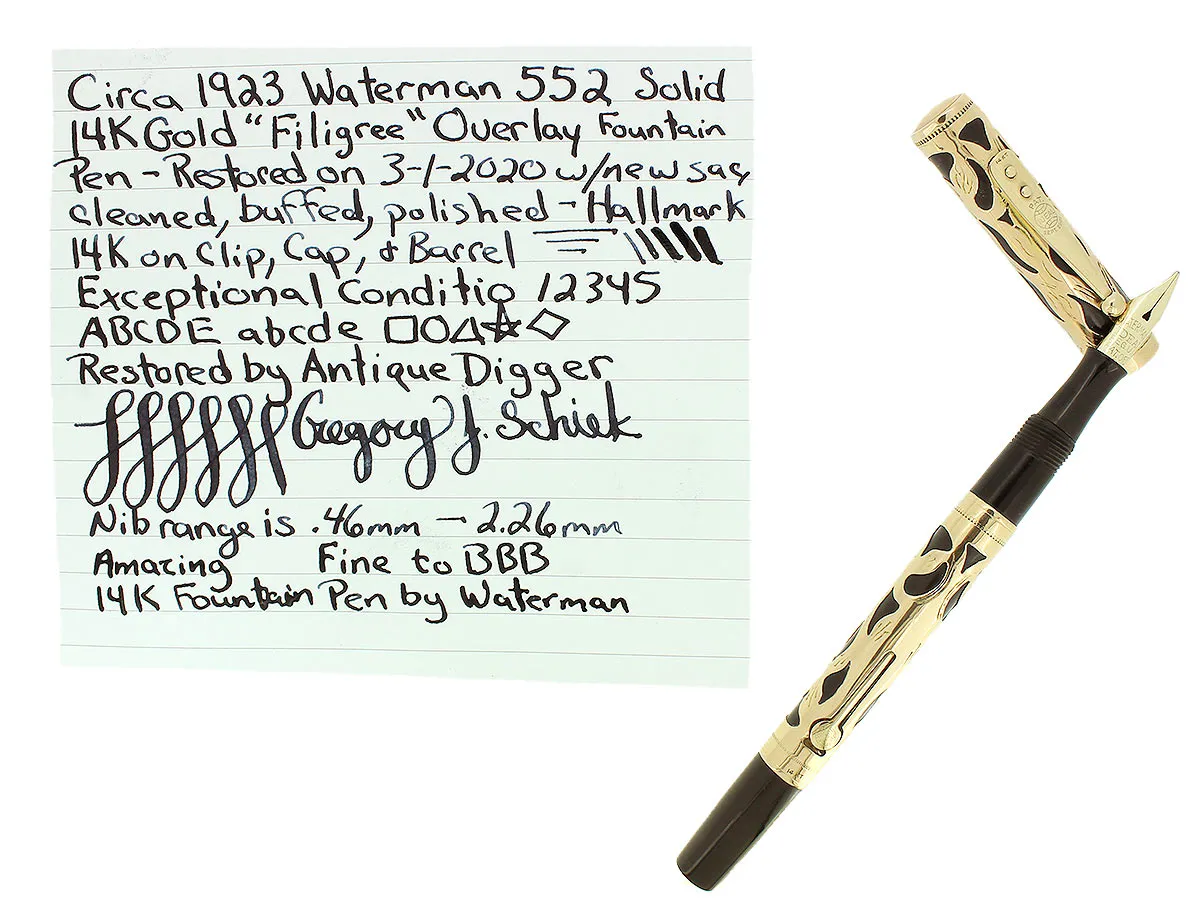 Circa 1923 Waterman 552 Solid
14K Gold "Filigree" Overlay Fountain
Pen - Restored on 3-1-2020 w/new sac,
cleaned, buffed, polished - Hallmark
14K on Clip, Cap, & Barrel
Exceptional Conditio 12345
ABCDE abcde
Restored by Antique Digger
Gregory J. Schiek
Nib range is .46mm - 2.26mm
Amazing Fine to BBB
14K Fountain Pen by Waterman